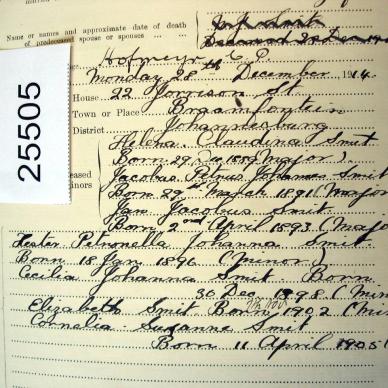 Name or names and approximate date of death
of predeceased spouse or spouses
Deceased
Hofmeyr C.P.
Monday 28th December 1914.
House 22 Jorrison St
Town or Place Braamfontein
District Johannesburg
Helena Claudina Smit
Born 29 1889 (Major)
Jacobus Petrus Johannes Smit
Born 29th March 1891 (Major
Jan Jacobus Smit
Born 2nd April 1893 (Major
Hester Petronella Johanna Smit
Born 18 Jan 1896 (Minor)
Cecilia Johanna Smit Born
30 Dec 1898 (Min
Elizabeth Smit Born 1902 (Min
Cornelia Suzanne Smit
Born 11 April 1905 (
25505